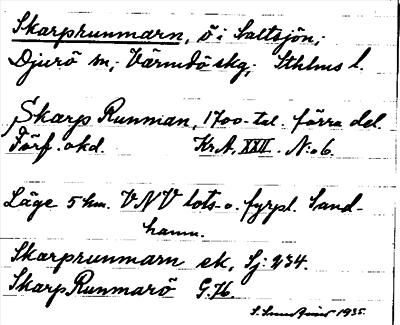 Skarprunmarn, ö i Saltsjön,
Djurö sn, Värmdö skg, Sthlms l.
Skarp Runman, 1700-tal. förra del.
Förf. okd. Kr.A. XXII. N:o 6.
Läge 5 km. VNV lots- o. fyrpl. Sand-
hamn.
Skarprunmarn ek, Sj: 234.
Skarp Runmarö G.K.
1935.